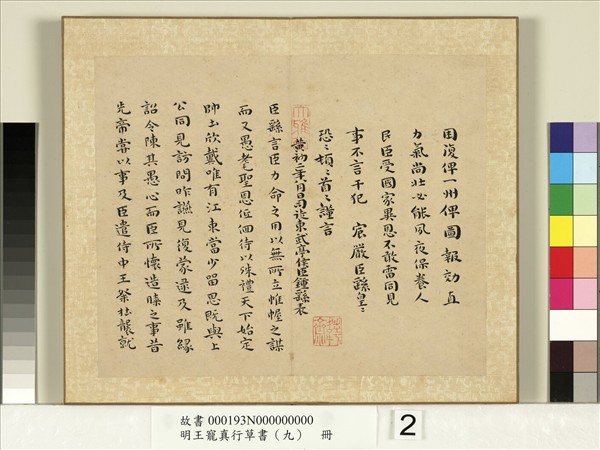 因復俾一州俾圖報効直
力氣尚壯必能夙夜保養人
民臣受國家異恩不敢雷同見
事不言干犯 宸嚴臣繇皇〻
恐〻頓〻首〻謹言
黄初二年八月日司徒東武亭侯臣鍾繇表
臣繇言臣力命之用以無所立惟幄之謀
而又愚耄聖恩低佪待以殊禮天下始定
帥土欣戴唯有江東當少留思既與上
公同見訪問昨讌見復蒙逮及雖緣
詔令陳其愚心而臣所懷造膝之事昔
先帝嘗以事及臣遣侍中王粲杜襲就
故書 000193N000000000
明王寵真行草書(九) 冊
2